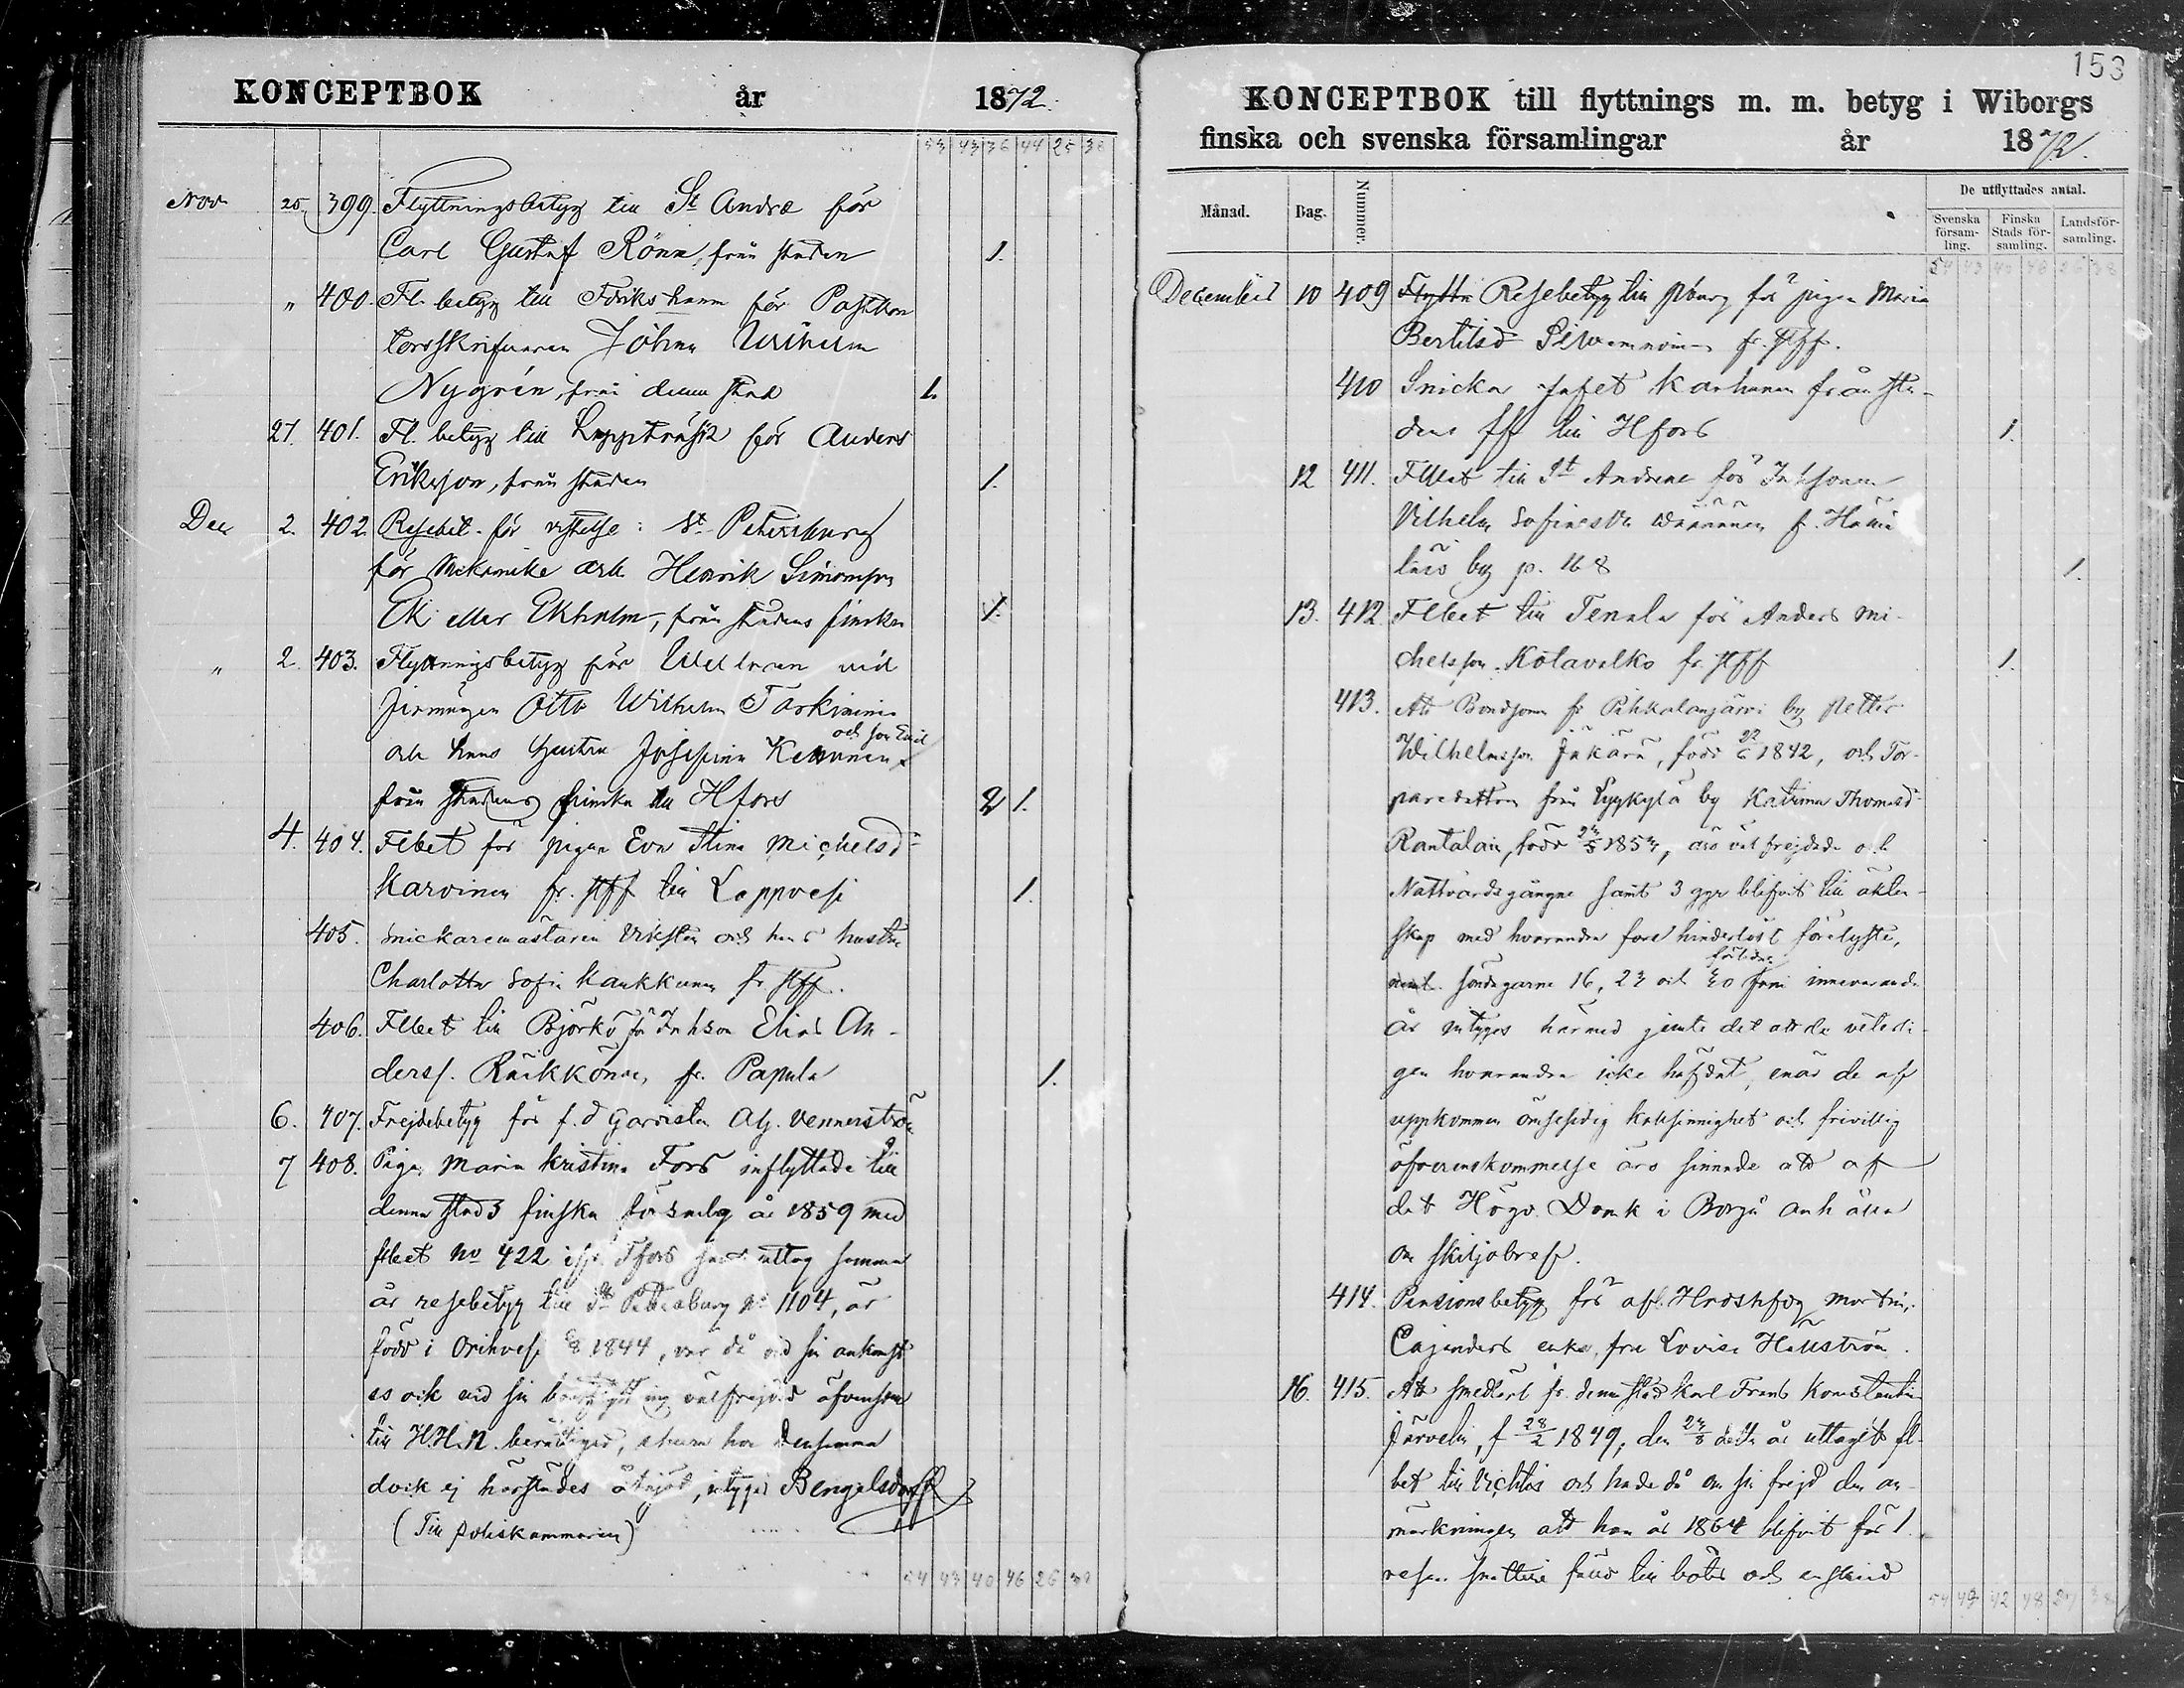 KONCEPTBOK år 1872.
53 43 36 44 25 38
Nov 25. 399. Flyttningsbetyg till St Andræ för
Carl Gustaf Rönn, från staden 1.
" 400. Fl. betyg till Fdrikshamn för
Johan Wilhelm
Nygrén, från denna stad 1.
27. 401. Fl. betyg till Lappträsk för Anders
Eriksson, från staden 1.
Dec 2. 402. Resebet. för vistelse i St Petersburg
för Mekanike arb. Henrik Simonsson
Ek eller Ekholm, från stadens finska 1.
" 2. 403. Flyttningsbetyg för vid
Otto Wilhelm Tarkiainen
och hans hustru Josefina
och son Emil
från stadens finska till Hfors 2 1.
4. 404. Flbet för pigan Eva Stina Michelsd:r
Karvinen fr. stff till Lappvesi 1.
405. Snickaremästaren och hans hustru
Charlotta Sofia Kaukkunen fr stff.
406. Flbet till Björkö för Inhson Elias An-
derss. Räikkönen, fr. Papula 1.
6. 407. Frejdebetyg för f.d Gardisten Alg. Vennerström
7 408. Pigan Maria Kristina Fors inflyttade till
denna stads finska församling år 1859 med
flbet No 422 ifr. Tfors samt uttog samma
år resebetyg till St Petersburg No 1104, är
född i Orihvesi 1844, var då vid sin ankomst
som ock vid sin bortflyttning välfrejdad äfvensom
till H.H.N. berättigad, ehuru hon densamma
dock ej härstädes åtnjöt, intygar Bengelsdorff
(Till poliskammaren)
54 43 40 46 26 38
153
KONCEPTBOK till flyttnings m. m. betyg i Wiborgs
finska och svenska församlingar år 1872.
Månad. Dag. Nummer. De utflyttades antal.
Svenska församling. Finska Stads församling. Landsförsamling.
54 43 40 46 26 38
December 10 409 Resebetyg till Pburg för pigan Maria
Bertilsd. fr. stff.
410 Snickar Jafet Karhunen från sta-
dens ff till Hfors 1.
12 411. Flbet till St Andreae för Inhsonen
Vilhelm fr.
by p. 168 1.
13. 412 Flbet till Tenala för Anders Mi-
chelsson Kolavalko fr. stff 1.
413. Att Bondsonen fr Pihkalanjärvi by Petter
Wilhelmsson Jäkärä, född 1842, och Tor-
paredottren från Lyykylä by Katrina Thomasd:r
Rantalain, född 1853, äro väl frejdade och
Nattvardsgångne samt 3 ggr blifvit till äkten-
skap med hvarandra förehinderlöst förelyste,
söndagarne 16, 23 och 30 Juni innevarande
förlidne
år intygas härmed jemte det att de veterli-
gen hvarandra icke häfdat, enär de af
uppkommen ömsesidig kallsinnighet och frivillig
öfverenskommelse äro sinnade att af
det Högv. Domk i Borgå anhålla
om skiljobref.
414. Pensionsbetyg för afl. Hrdshfdg Martin
Cajanders enka, fru Lovisa Hellström.
16. 415. Att smedlärl fr. denna stad Karl Frans Konstantin
Järvelin, f 28/2 1849, den detta år uttagit fl-
bet till Vichtis och hade då om sin frejd den an-
märkningen att han år 1864 blifvit för 1.
resan snatteri fälld till böter och enskild
54 43 42 48 27 38